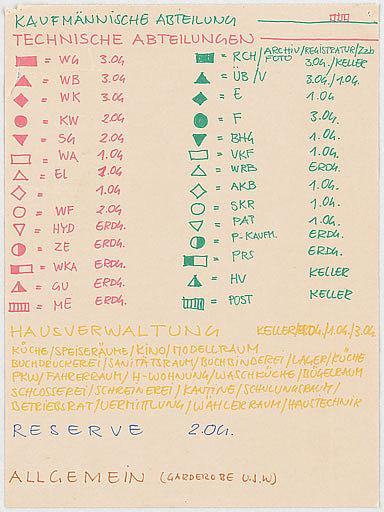 KAUFMÄNNISCHE ABTEILUNG
TECHNISCHE ABTEILUNGEN
= WG 3.OG
= WB 3.OG
= WK 3.OG
= KW 2.OG
= SG 2.OG
= WA 1.OG
= EL 1.OG
= 1.OG
= WF 2.OG
= HYD ERDG.
= ZE ERDG.
= WKA ERDG.
= GU ERDG.
= ME ERDG.
= RCH/ARCHIV/REGISTRATUR/Zzb
FOTO 3.OG./KELLER
= ÜB/V 3.OG./1.OG.
= E 1.OG
= F 3.OG.
= BHG 1.OG.
= VKF 1.OG.
= WRB ERDG.
= AKB 1.OG.
= SKR 1.OG.
= PAT 1.OG.
= P-KAUFM. ERDG.
= PRS ERDG.
= HV KELLER
= POST KELLER
HAUSVERWALTUNG KELLER/ERDG/1.OG/3.OG
KÜCHE/SPEISERÄUME/KINO/MODELLRAUM
BUCHDRUCKEREI/SANITÄTSRAUM/BUCHBINDEREI/LAGER/KÜCHE
PKW/FAHRERRAUM/H-WOHNUNG/WASCHKÜCHE/BÜGELRAUM
SCHLOSSEREI/SCHREINEREI/KANTINE/SCHULUNGSRAUM/
BETRIEBSRAT/VERMITTLUNG/WÄHLERRAUM/HAUSTECHNIK
RESERVE 2.OG.
ALLGEMEIN (GARDEROBE U.S.W)